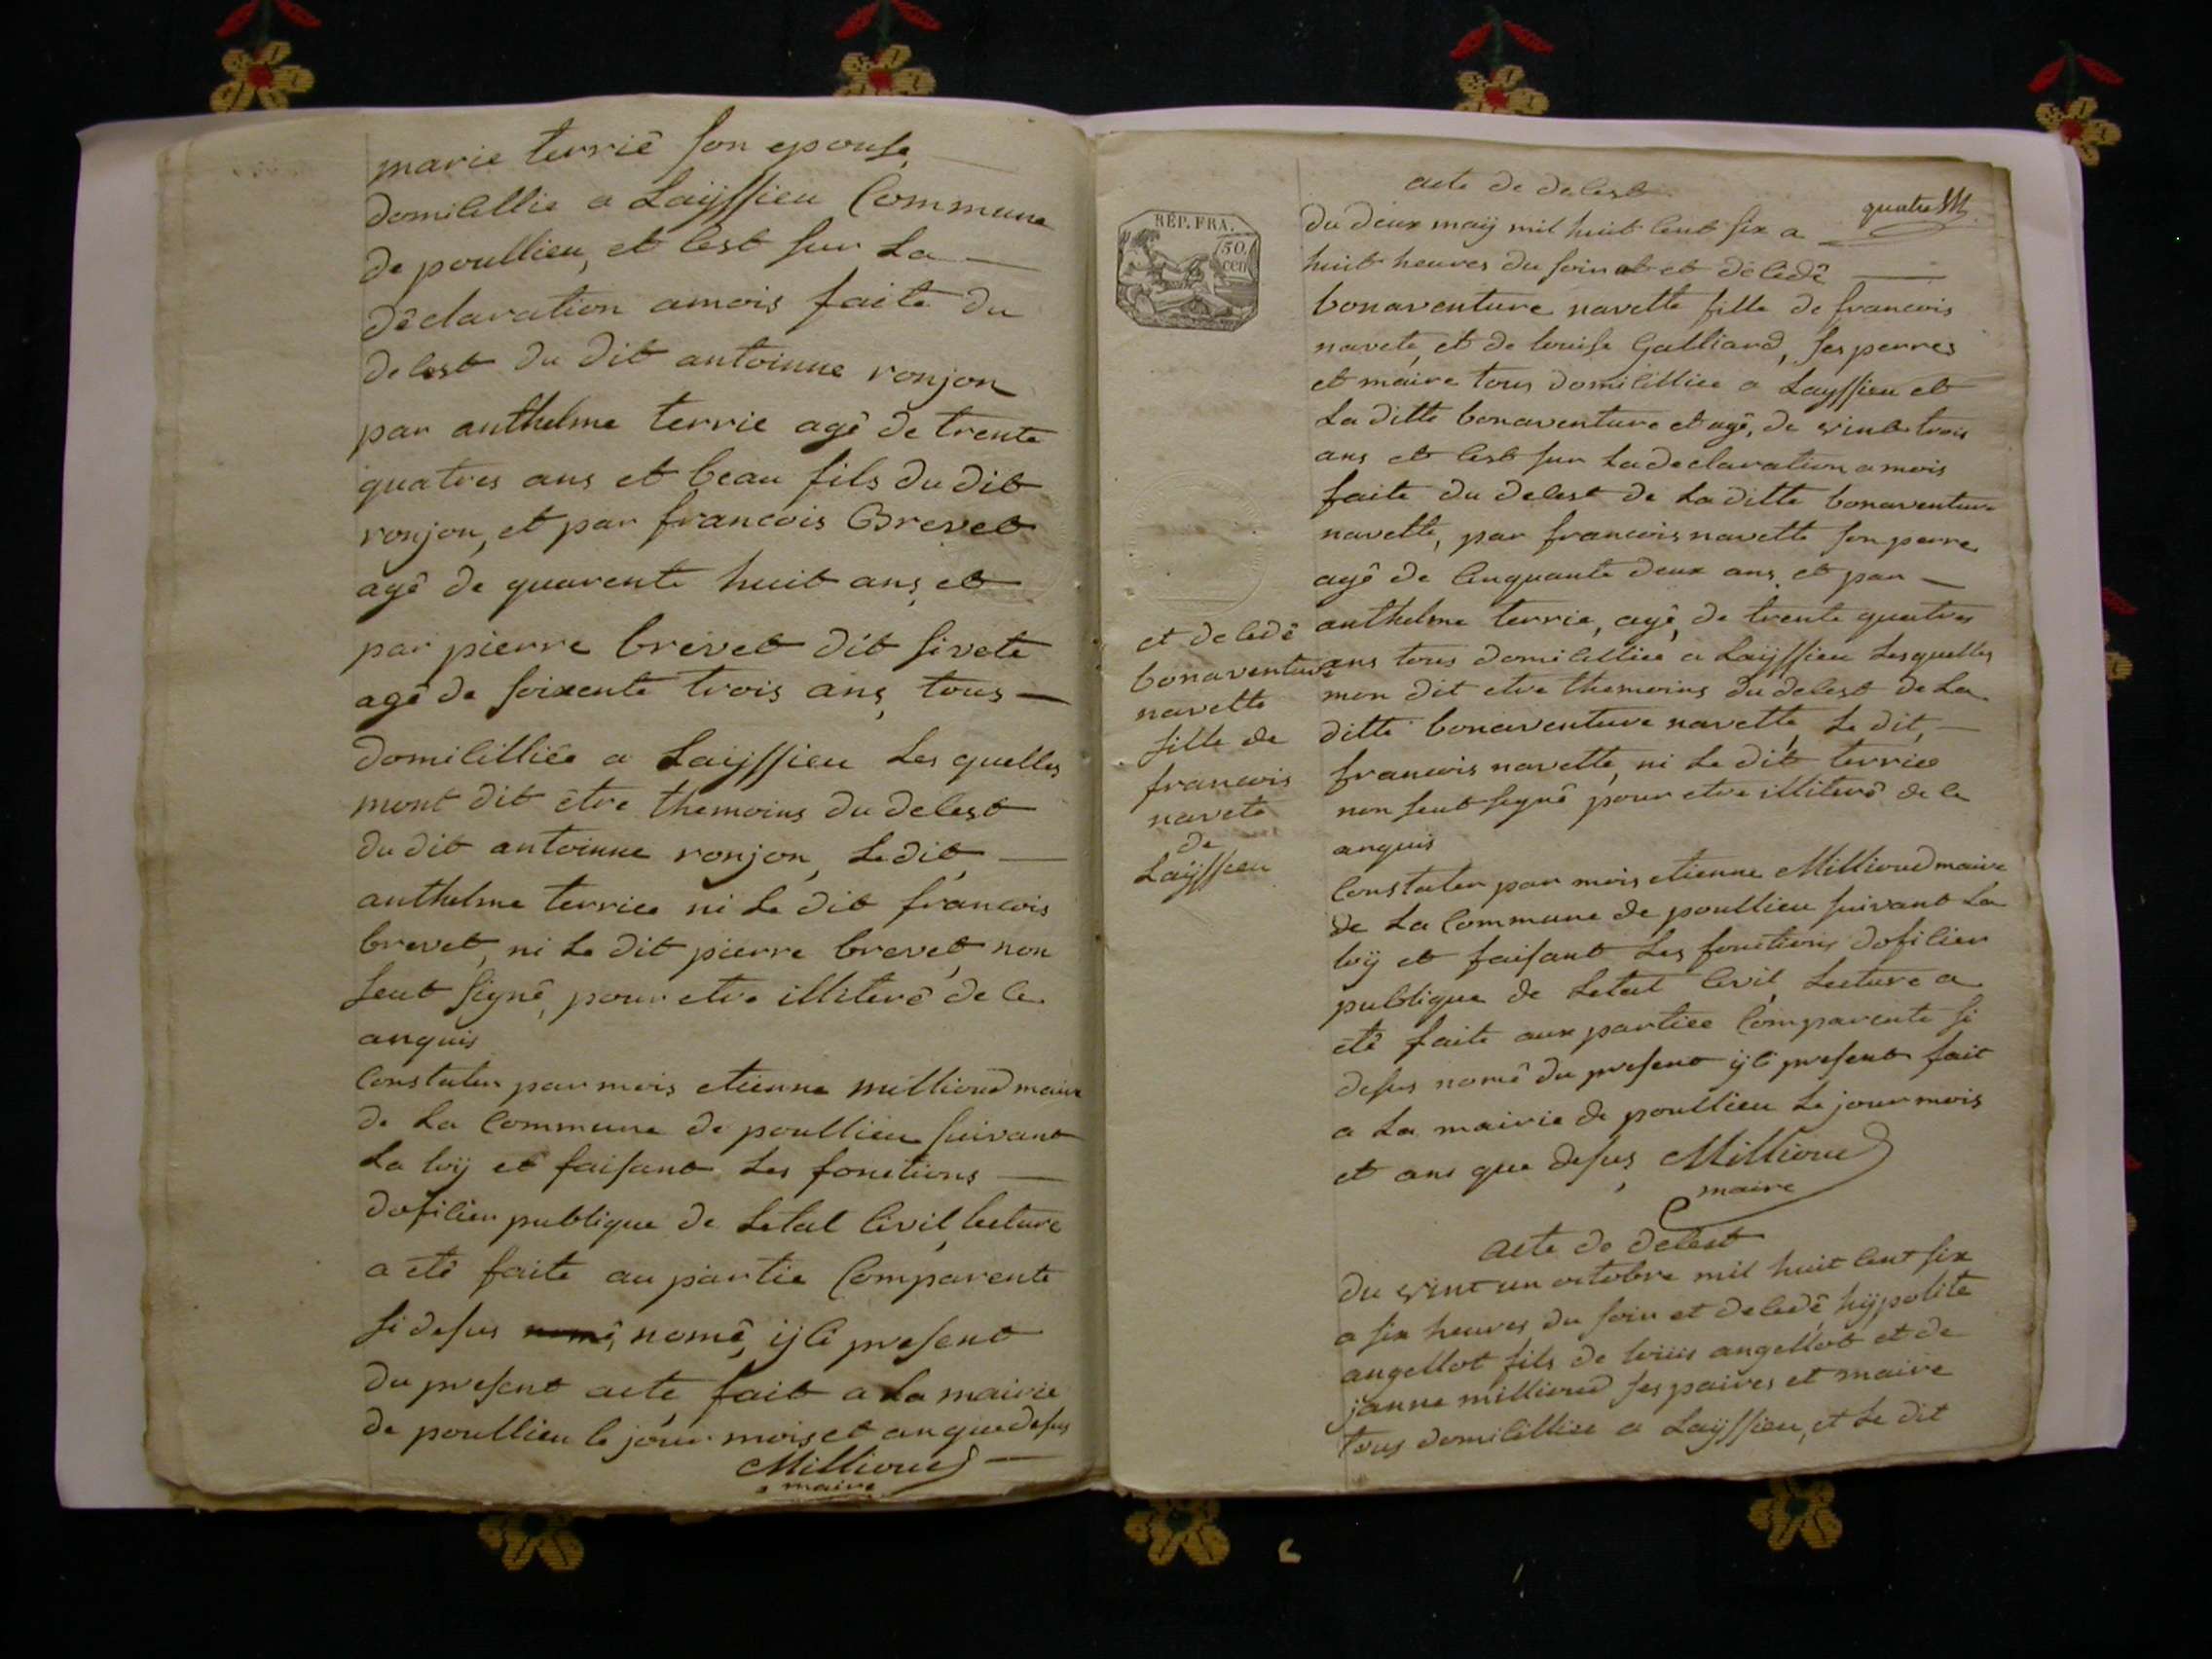 marie terrié son epouse
domicillie a Laÿssieu Commune
de poullieu, et cest sur La
déclaration amois faite du
decest du dit antoinne ronjon
par anthelme terrie agé de trente
quatres ans et beau fils du dit
ronjon, et par francois Brevet
agé de quarente huit ans, et
par pierre brevet dit sivete
agé de soixente trois ans, tous
domicilliée a Laÿssieu Les quelles
mont dit être themoins du decest
du dit antoinne ronjon, Le dit
anthelme terriee ni Le dit francois
brevet, ni Le dit pierre brevet non
seut signé, pour etre illiteré de ce
anquis
Constater par mois etienne millioud maire
de La Commune de poullieu suivant
La loÿ et faisant Les fonctions
doficier publique de Letat Civil, lecture
a eté faite au partie Comparente
si desus nomé, nomé, ÿci present
du present acte fait a La mairie
de poullieu le jour mois et an que desus
Millioud
maire
quatre
RÉP. FRA.
50
cen
acte de decest
du deux maÿ mil huit Cent six a
huit heures du soir et et décédé
bonaventure navette fille de francois
navete, et de louise Galliard, ses perres
et maire tous domicilliee a Laÿssieu et
La ditte bonaventure et agé, de vint trois
ans et Cest sur La declaration a mois
faite du decest de La ditte bonaventure
navette, par francois navette son perre
agé de Cinquante deux ans et par
anthelme terrie, agé, de trente quatres
ans tous domicilliée a Laÿssieu Lesquelles
mon dit etre themoins du decest de La
ditte bonaventure navette, Le dit,
francois navette, ni Le dit terriee
non seut signé pour etre illiteré de ce
anquis
Constater par mois etienne Millioud maire
de La Commune de poullieu suivant La
loÿ et faisant Les fonctions doficier
publique de Letat Civil, Lecture a
eté faite aux partiee Comparente si
desus nomé du present ÿci present fait
a La mairie de poullieu Le jour mois
et ans que desus, Millioud
maire
et decedé
bonaventure
navette
fille de
francois
navete
de
Laÿssieu
acte de decest
du vint un octobre mil huit Cent six
a six heures, du soir et decedé, hÿpolite
angellot fils de louis angellot et de
janne millioud ses paires et maire
tous domicilliee a Laÿssieu, et Le dit